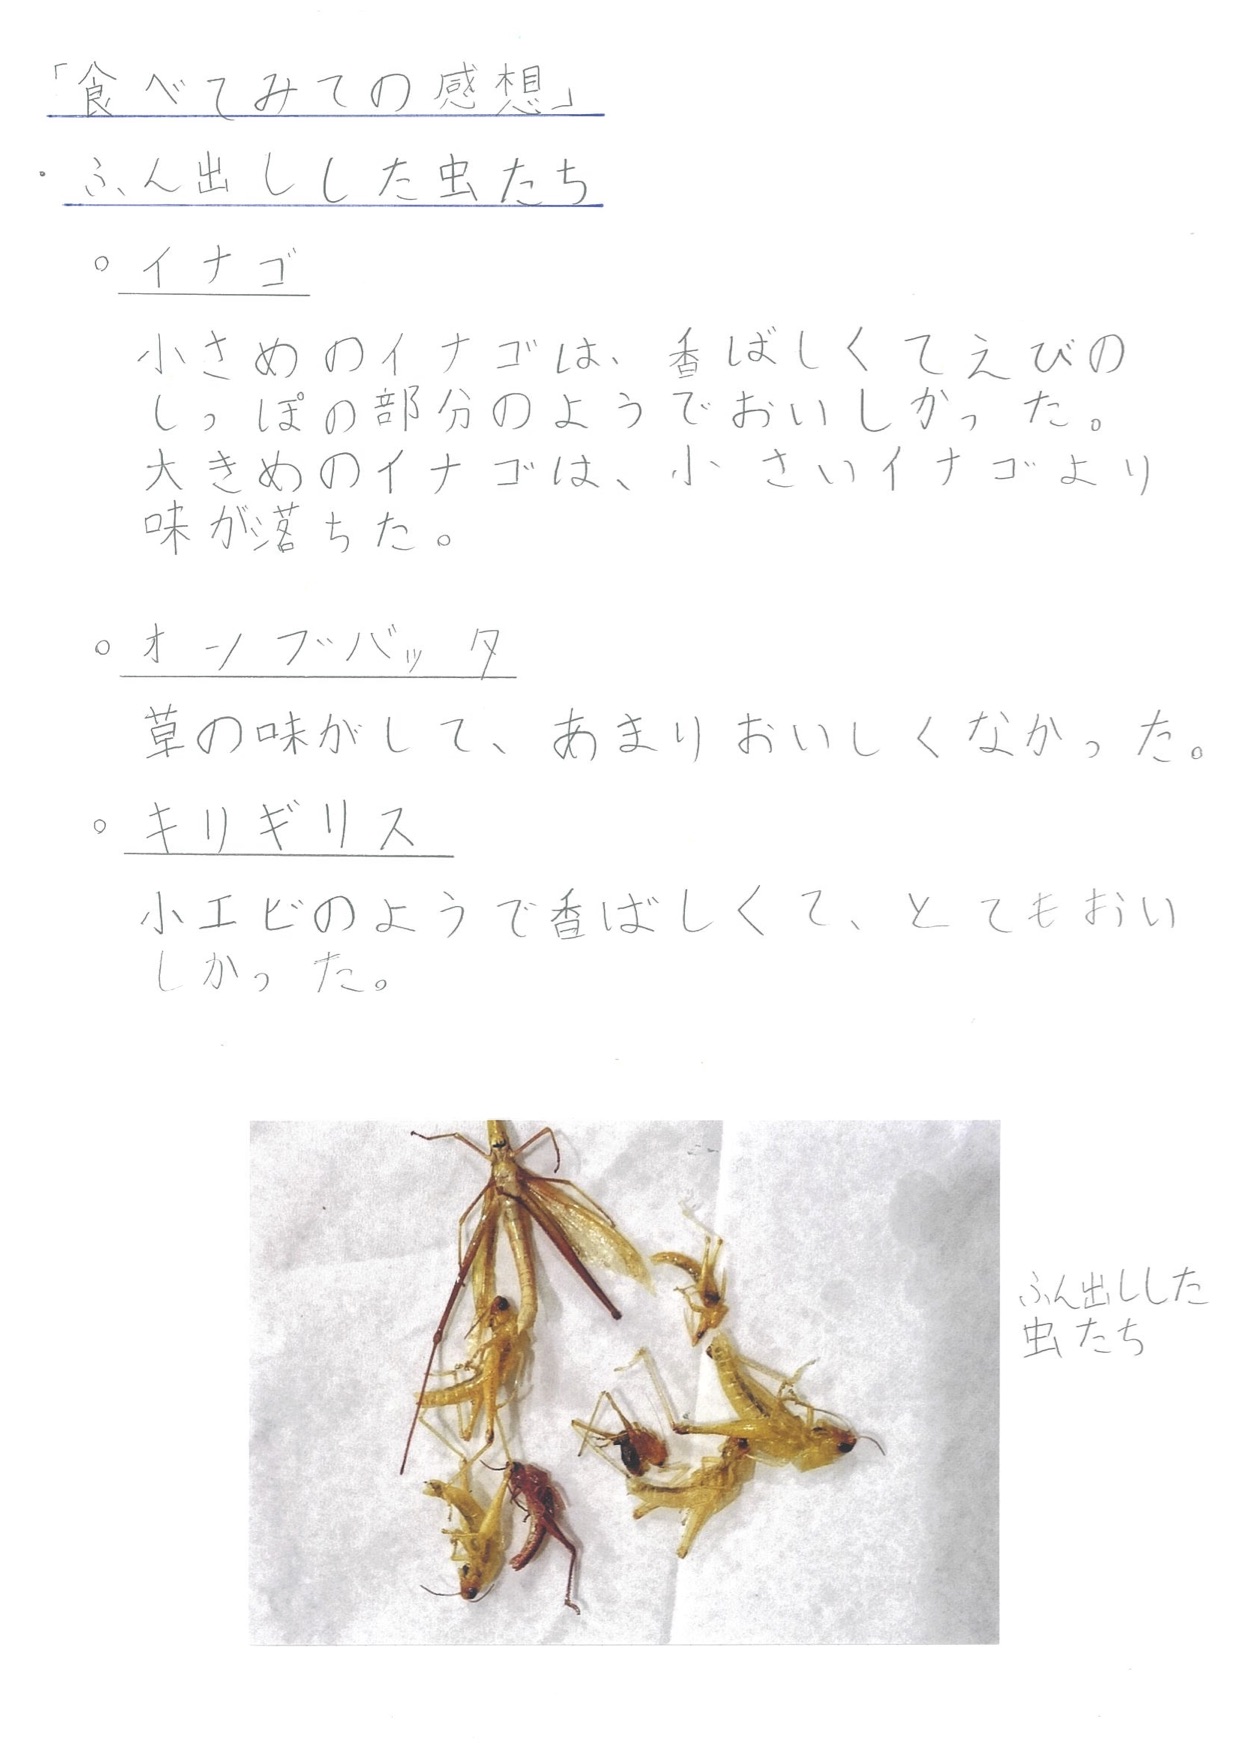 「食べてみての感想」
・ふん出しした虫たち
○イナゴ
小さめのイナゴは、香ばしくてえびの
しっぽの部分のようでおいしかった。
大きめのイナゴは、小さいイナゴより
味が落ちた。
○オンブバッタ
草の味がして、あまりおいしくなかった。
○キリギリス
小エビのようで香ばしくて、とてもおい
しかった。
ふん出しした
虫たち